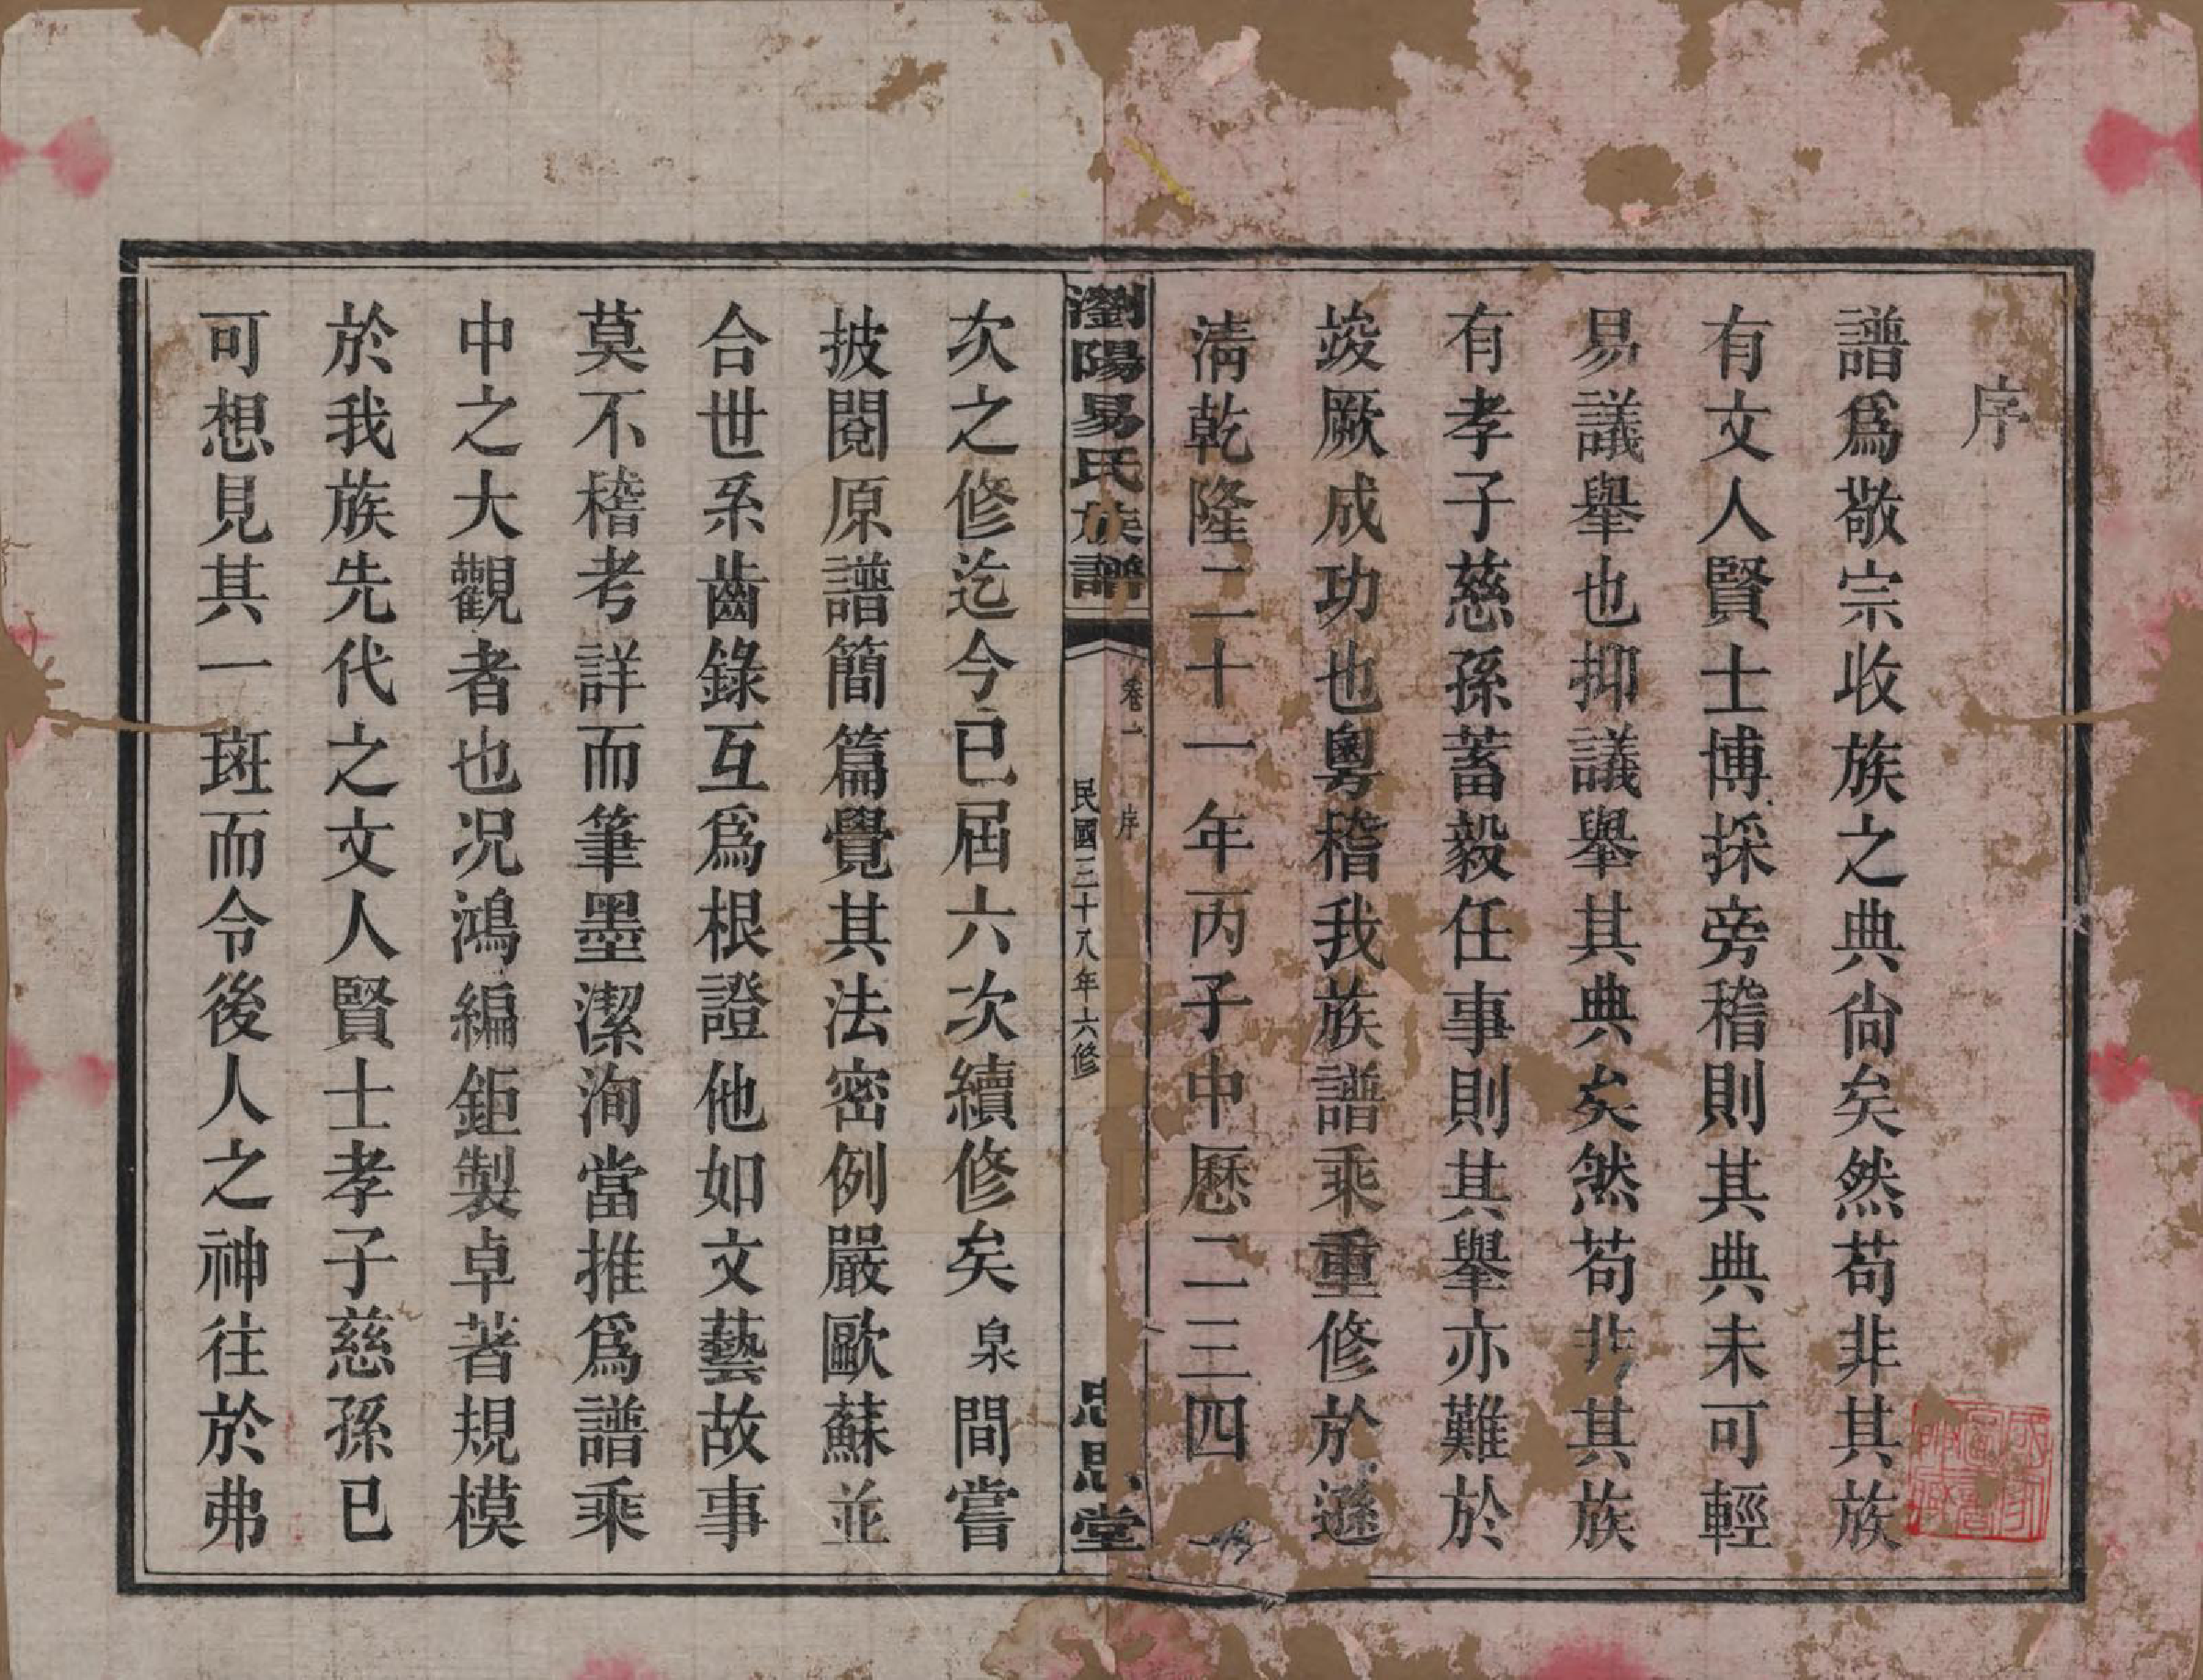 序
譜爲敬宗收族之典尙矣然苟非其族
有文人賢士博採旁稽則其典未可輕
易議舉也抑議舉其典矣然苟非其族
有孝子慈孫蓄毅任事則其舉亦難於
竣厥成功也粤稽我族譜乘重修於遜
淸乾隆二十一年丙子中歷二三四
瀏陽易氏族譜
卷一 序
民國三十八年六修
忠思堂
次之修迄今已屆六次續修矣泉間嘗
披閱原譜簡篇覺其法密例嚴歐蘇並
合世系齒錄互爲根證他如文藝故事
莫不稽考詳而筆墨潔洵當推爲譜乘
中之大觀者也况鴻編鉅製卓著規模
於我族先代之文人賢士孝子慈孫已
可想見其一斑而令後人之神往於弗